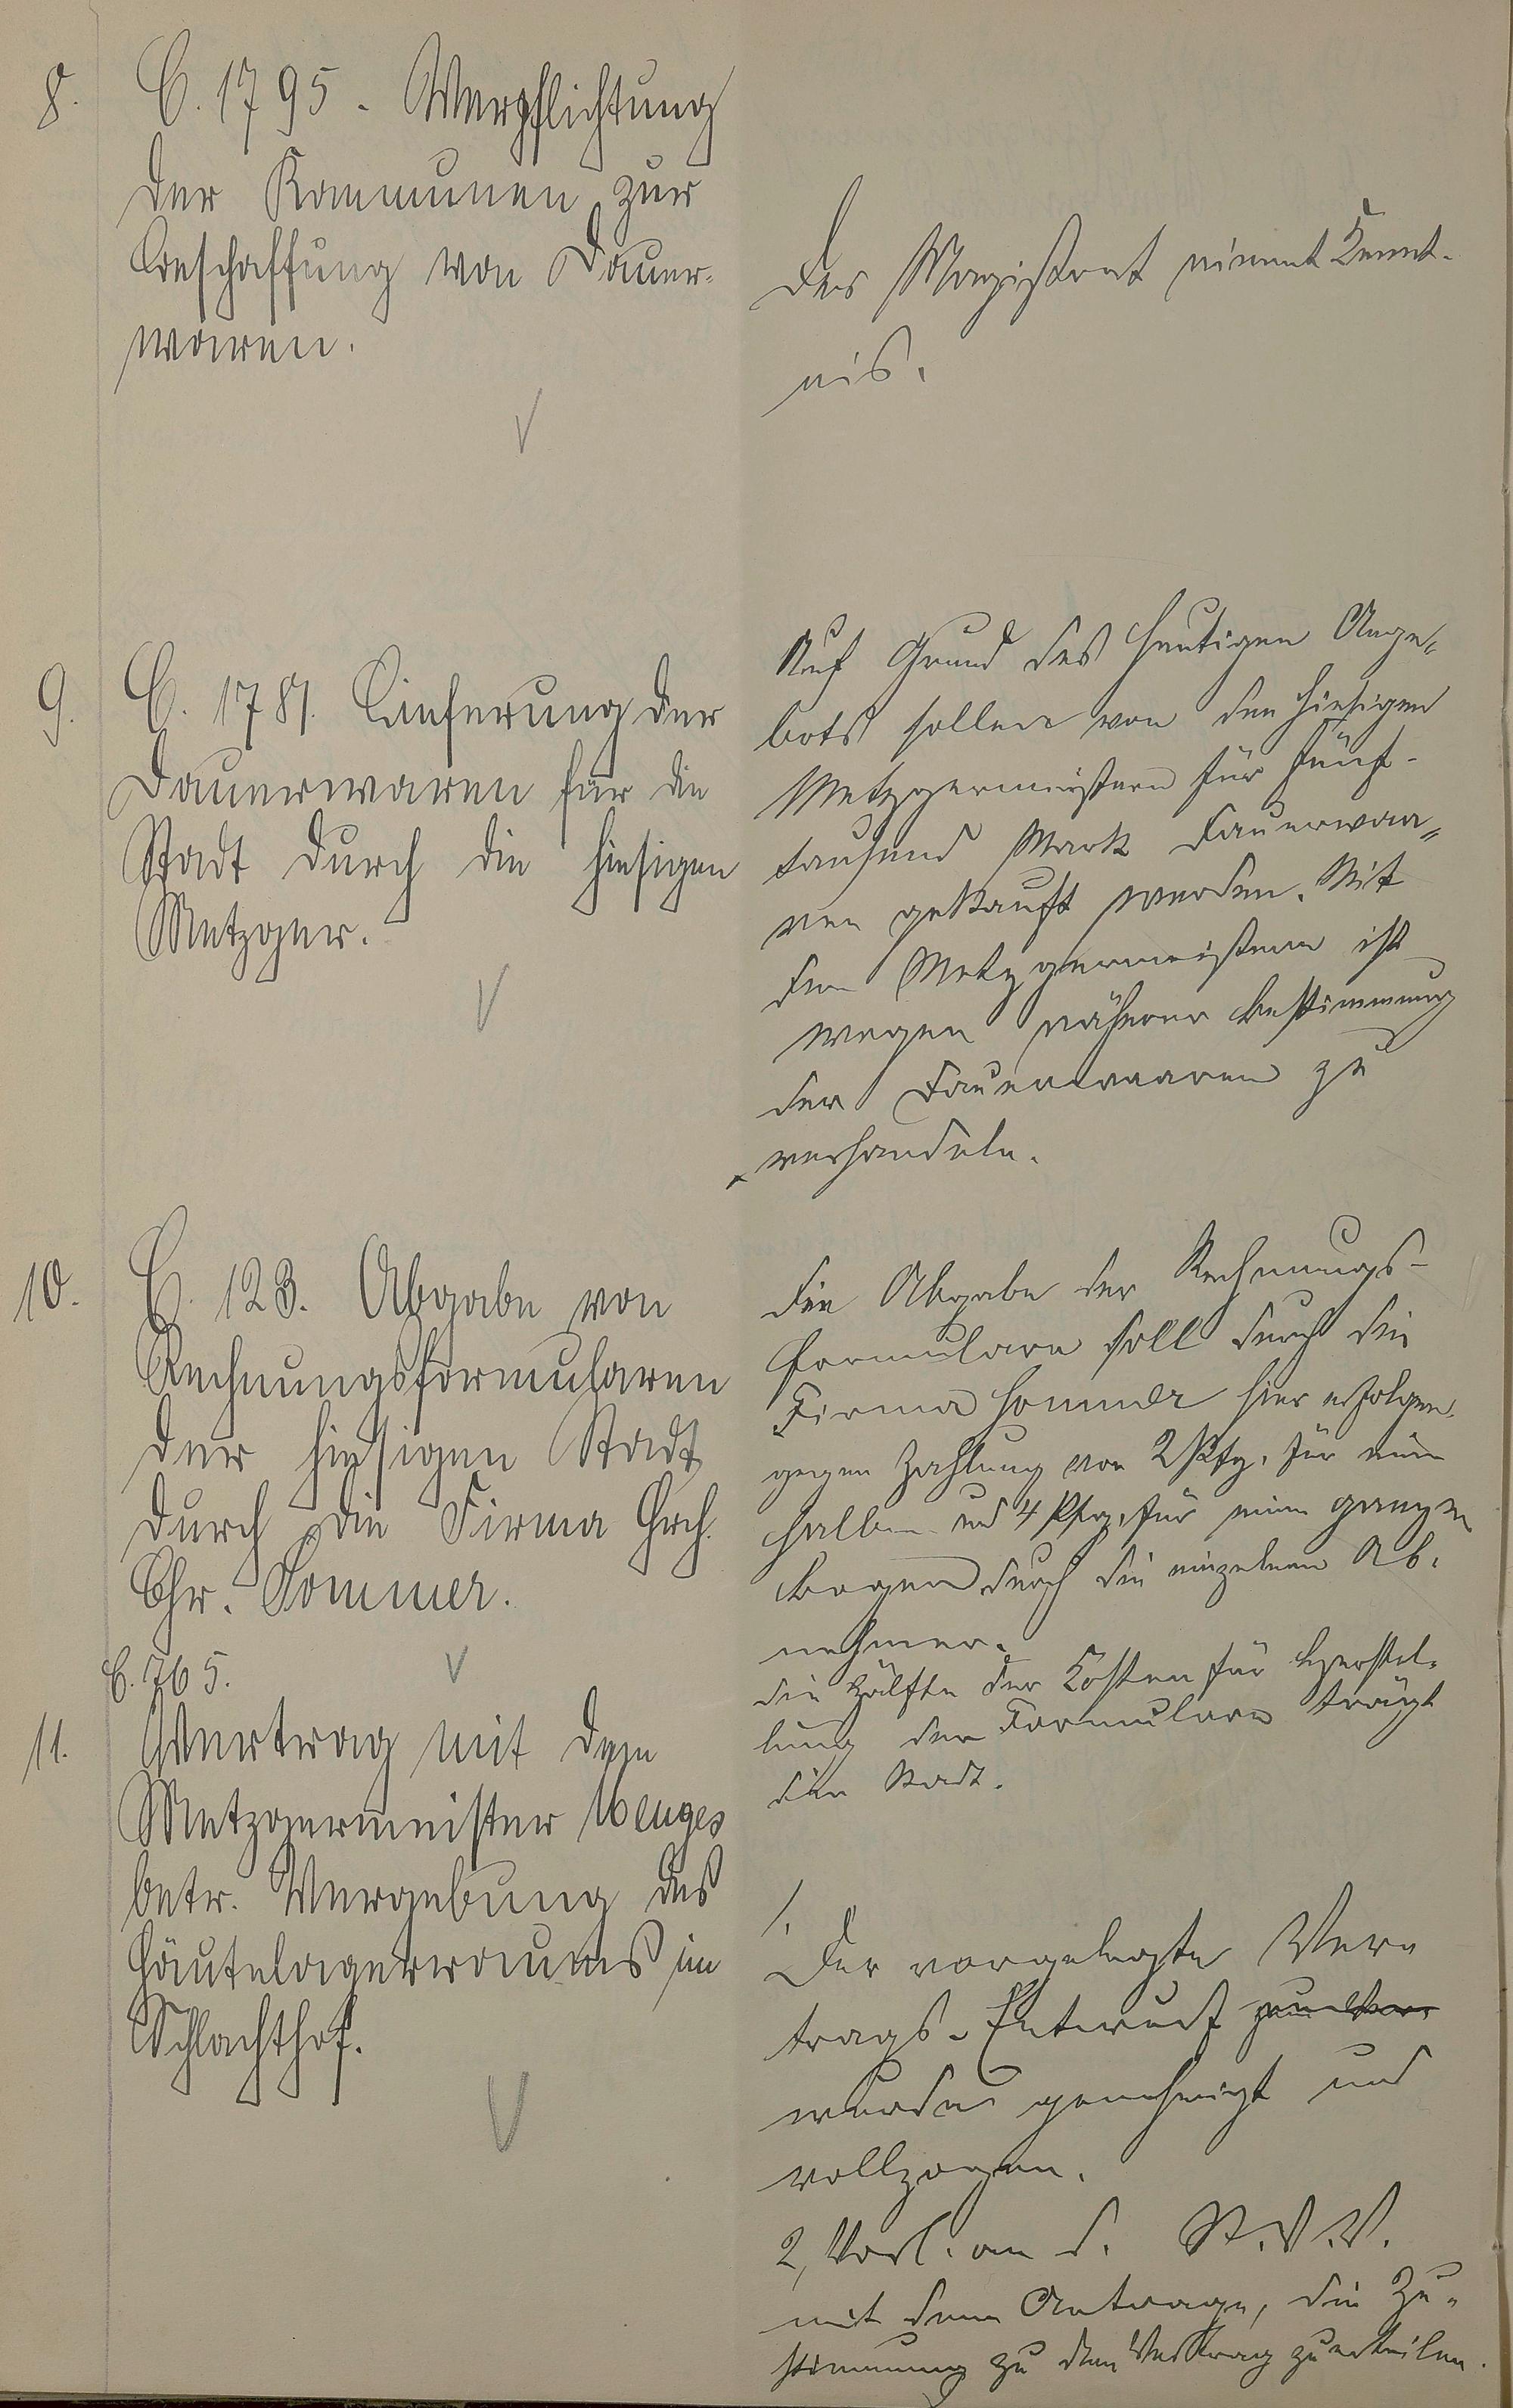 8. C. 1795 - Verpflichtung
der Kommunen zur
Beschaffung von Dauer-
waren.
Der Magistrat nimmt Kennt-
nis.
9. C. 1781. Lieferung der
Dauerwaren für die
Stadt durch die hiesigen
Metzger.
Auf Grund des heutigen Ange-
bots sollen von den hiesigen
Metzgermeistern für fünf-
tausend Mark Dauerwaa-
ren gekauft werden. Mit
den Metzgermeistern ist
wegen näherer Bestimmung
der Dauerwaaren zu
verhandeln.
10. C. 123. Abgabe von
Rechnungsformularen
der hiesigen Stadt
durch die Firma Hch.
Chr. Sommer.
Die Abgabe der Rechnungs-
formulare soll durch die
Firma Sommer hier erfolgen
gegen Zahlung von 2 Pfg. für einen
halben und 4 Pfg. für einen ganzen
Bogen durch die einzelnen Ab-
nehmer.
Die Hälfte der Kosten für Herstel-
lung der Formulare trägt
die Stadt.
C. 765.
11. Vertrag mit dem
Metzgermeister Menges
betr. Vergebung des
Häutelagerraumes im
Schlachthof.
1.
Der vorgelegte Ver-
trags-Entwurf
wurde genehmigt und
vollzogen.
2, Vorl. an d. St.V.V.
mit dem Antrage, die Zu-
stimmung zu dem Vertrag zu erteilen.